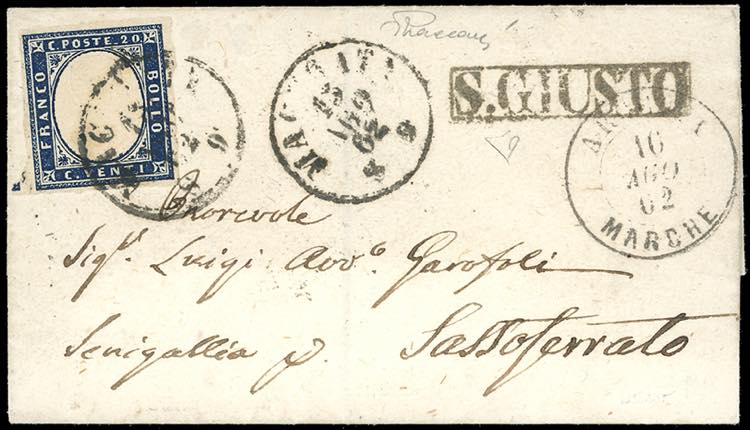 C. POSTE. 20.
FRANCO
BOLLO
C. VENTI
MACERATA
S. GIUSTO
16
AGO
62
MARCHE
Onorevole
Sigr. Luigi Avvo. Garofoli
Senigallia p. Sassoferrato